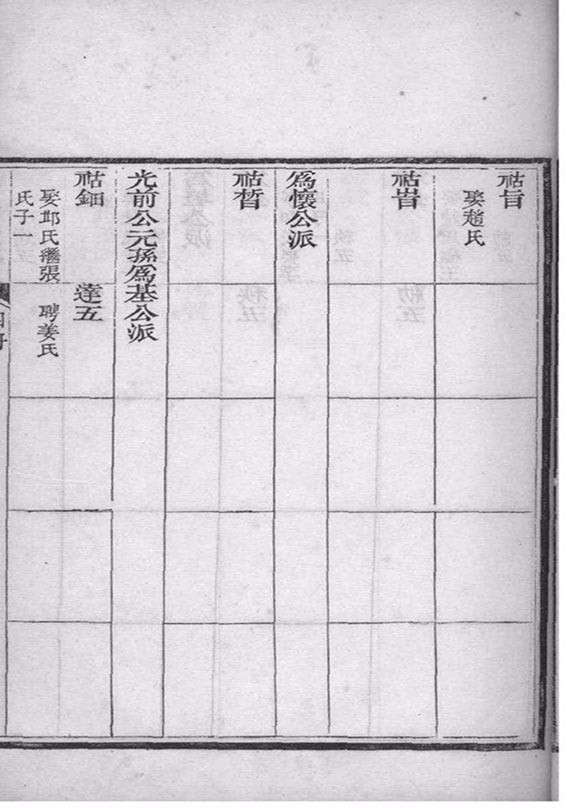 祜旨
娶趙氏
祜旹
為懷公派
祜晳
光前公元孫為基公派
祜鈿
娶邱氏繼張
氏子一
達五
聘姜氏